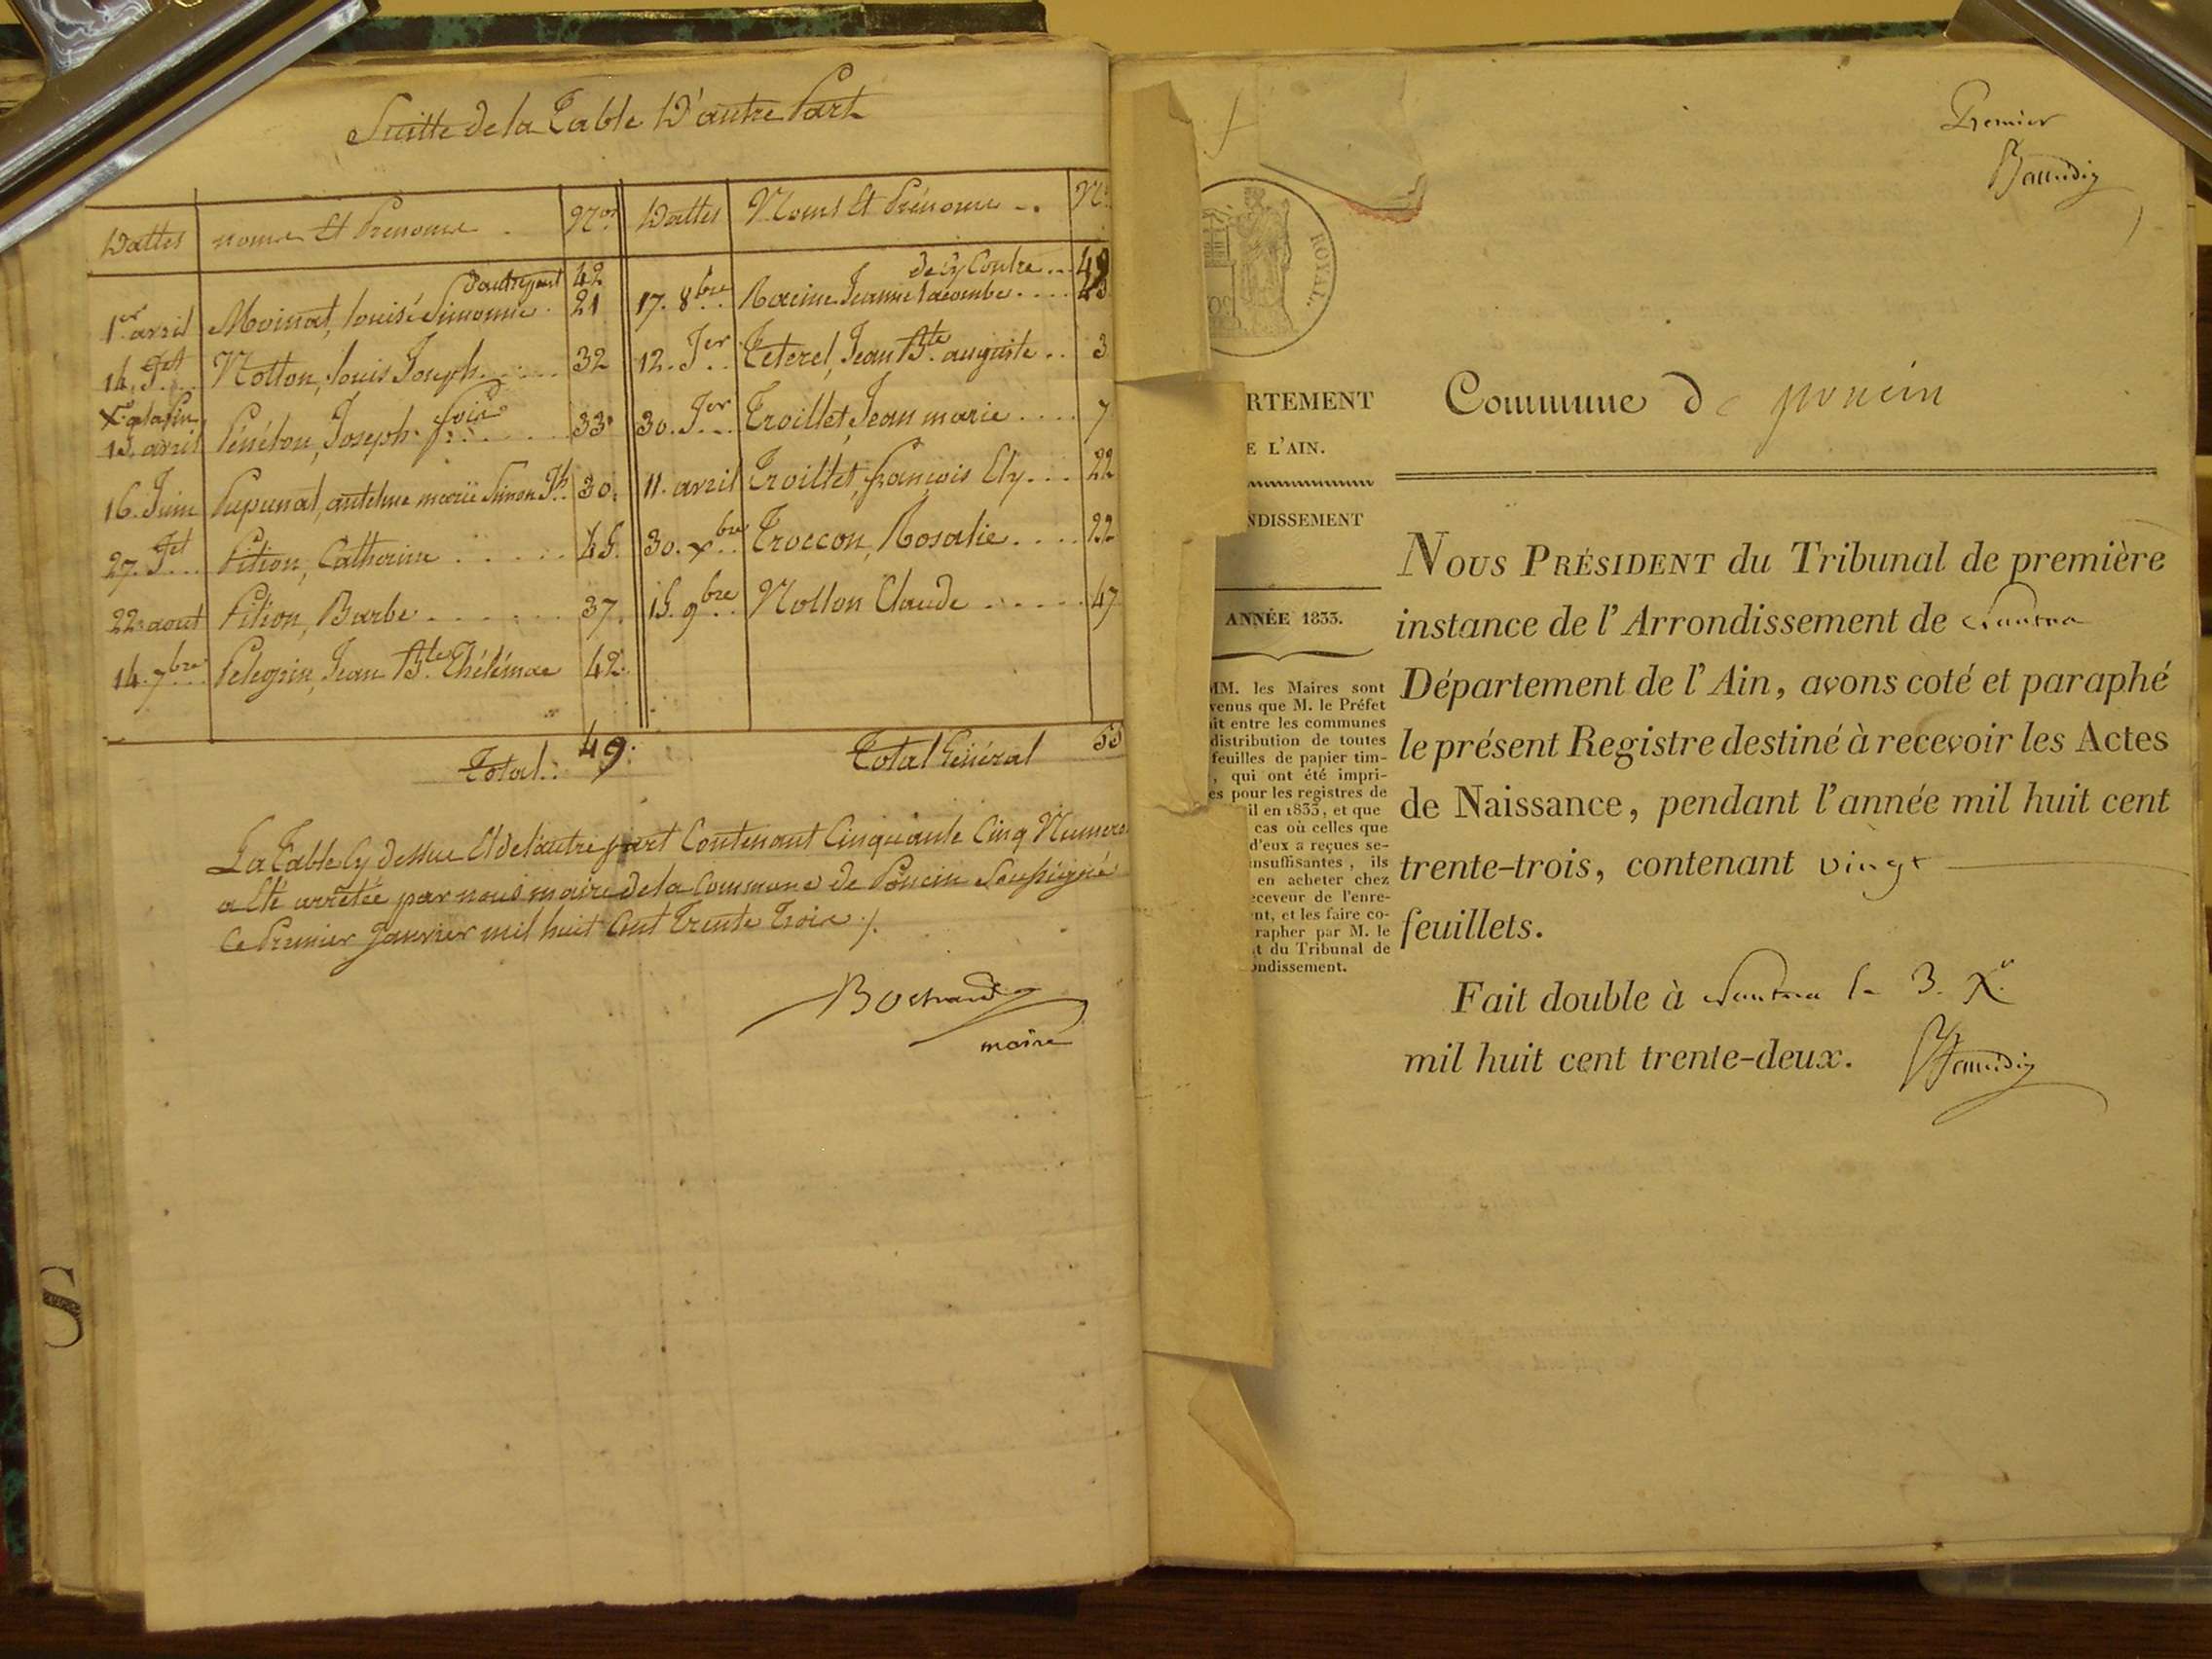 Suitte de la Table D'autre Part
Dattes noms Et Prenoms . Nos Dattes Noms Et Prénoms .. Nos
D'autre part 42 de cy Contre .. 49
1er avril Moinat, louise Simonne . 21 17. 8bre Racine Jeanne lacombe .... 43
14. Jet Notton, louis Joseph ...... 32 12. Jer Teterel, Jean Bte auguste .. 3
X a la fin
13. avril Pénélon, Joseph fois ...... 33 30. Jer Troillet, Jean marie .... 7
16. Juin Pupunat, antelme marie Simon Jh. 30. 11. avril Troillet, françois Ely ... 22
27. Jet Pition, Catherine ...... 45. 30. xbre Troccon, Rosalie .... 22
22. aout Pition, Barbe ....... 37. 15. 9bre Nollon Claude ...... 47
14. 7bre Pelegrin, Jean Bte Thélémae 42.
Total .. 49. Total Général 55
La Table Cy dessus Et de l'autre part Contenant Cinquante Cinq Numero
a Eté arrêtée par nous maire de la Commune de Poncin Soussigné
Ce Premier Janvier mil huit Cent Trente Trois ./.
Bochard
maire
Premier
Baudin
ROYAL.
RTEMENT
E L'AIN.
NDISSEMENT
ANNÉE 1833.
MM. les Maires sont
venus que M. le Préfet
it entre les communes
distribution de toutes
feuilles de papier tim-
, qui ont été impri-
es pour les registres de
il en 1833, et que
cas où celles que
d'eux a reçues se-
insuffisantes, ils
en acheter chez
eceveur de l'enre-
nt, et les faire co-
rapher par M. le
t du Tribunal de
ondissement.
Commune de poncin
NOUS PRÉSIDENT du Tribunal de première
instance de l'Arrondissement de Nantua
Département de l'Ain, avons coté et paraphé
le présent Registre destiné à recevoir les Actes
de Naissance, pendant l'année mil huit cent
trente-trois, contenant vingt
feuillets.
Fait double à Nantua le 3. Xe
mil huit cent trente-deux. Baudin
S